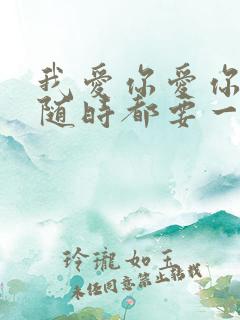 我爱你爱你
随时都要一
玲瓏如玉
未经同意禁止转载